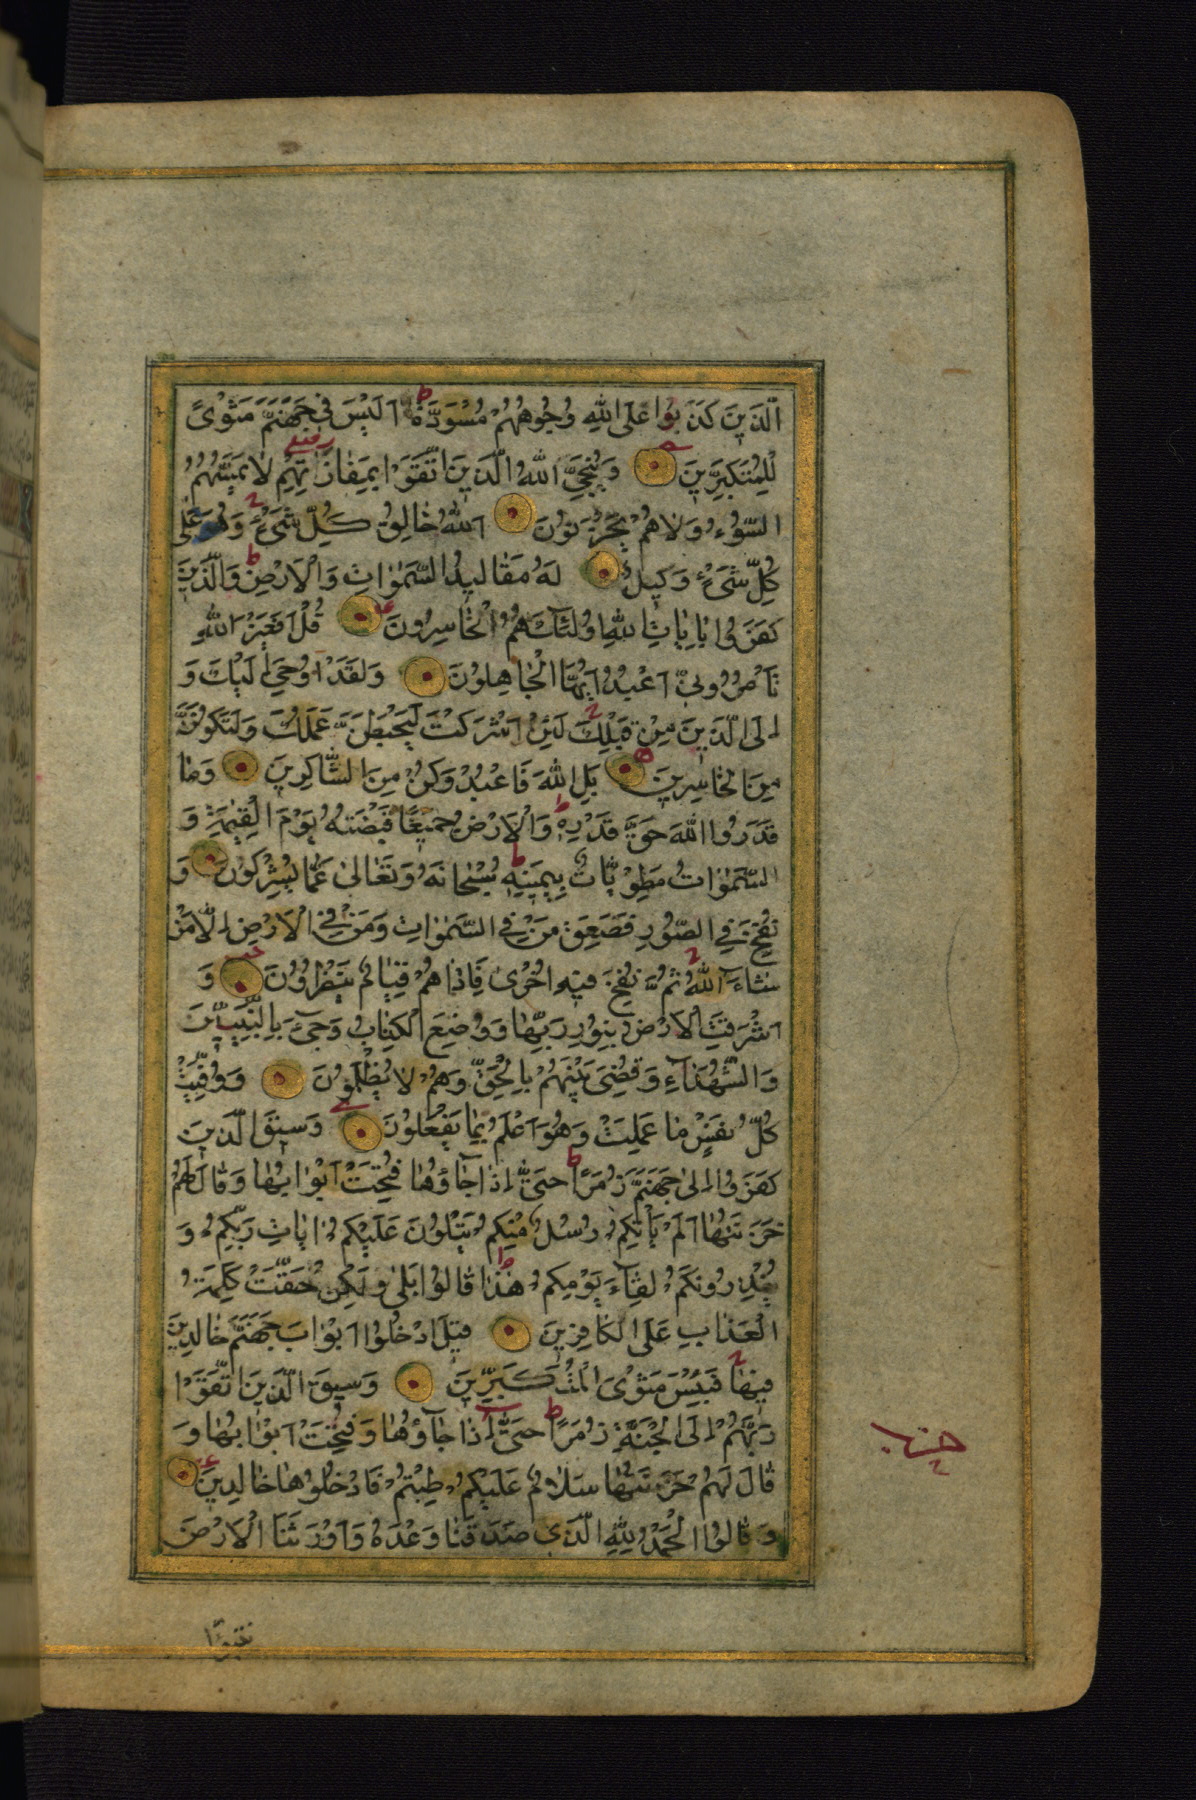 الَّذينَ كَذَبُوا عَلَى اللّٰهِ وُجُوهُهُمْ مُسْوَدَّةٌ اَلَيْسَ فى جَهَنَّمَ مَثْوًى
لِلْمُتَكَبِّرينَ وَيُنَجِّى اللّٰهُ الَّذينَ اتَّقَوْا بِمَفٰازَتِهِمْ لٰا يَمَسُّهُمُ
السُّوۤءُ وَلٰا هُمْ يَحْزَنُونَ اَللّٰهُ خٰالِقُ كُلِّ شَىْءٍ وَهُوَ عَلٰى
كُلِّ شَىْءٍ وَكيلٌ لَهُ مَقٰاليدُ السَّمٰوٰاتِ وَالْاَرْضِ وَالَّذينَ
كَفَرُوا بِاٰيٰاتِ اللّٰهِ اُولٰئِكَ هُمُ الْخٰاسِرُونَ قُلْ اَفَغَيْرَ اللّٰهِ
تَأْمُرُونّى اَعْبُدُ اَيُّهَا الْجٰاهِلُونَ وَلَقَدْ اُوحِىَ اِلَيْكَ وَ
اِلَى الَّذينَ مِنْ قَبْلِكَ لَئِنْ اَشْرَكْتَ لَيَحْبَطَنَّ عَمَلُكَ وَلَتَكُونَنَّ
مِنَ الْخٰاسِرينَ بَلِ اللّٰهَ فَاعْبُدْ وَكُنْ مِنَ الشّٰاكِرينَ وَمٰا
قَدَرُوا اللّٰهَ حَقَّ قَدْرِهِ وَالْاَرْضُ جَميعًا قَبْضَتُهُ يَوْمَ الْقِيٰمَةِ وَ
السَّمٰوٰاتُ مَطْوِيّٰاتٌ بِيَمينِهِ سُبْحٰانَهُ وَتَعٰالىٰ عَمّٰا يُشْرِكُونَ وَ
نُفِخَ فِى الصُّورِ فَصَعِقَ مَنْ فِى السَّمٰوٰاتِ وَمَنْ فِى الْاَرْضِ اِلّٰا مَنْ
شٰاۤءَ اللّٰهُ ثُمَّ نُفِخَ فيهِ اُخْرٰى فَاِذٰا هُمْ قِيٰامٌ يَنْظُرُونَ وَ
اَشْرَقَتِ الْاَرْضُ بِنُورِ رَبِّهٰا وَوُضِعَ الْكِتٰابُ وَجىۤءَ بِالنَّبِيّينَ
وَالشُّهَدٰاۤءِ وَقُضِىَ بَيْنَهُمْ بِالْحَقِّ وَهُمْ لٰا يُظْلَمُونَ وَوُفِّيَتْ
كُلُّ نَفْسٍ مٰا عَمِلَتْ وَهُوَ اَعْلَمُ بِمٰا يَفْعَلُونَ وَسيقَ الَّذينَ
كَفَرُوا اِلىٰ جَهَنَّمَ زُمَرًا حَتّٰى اِذٰا جٰاۤؤُهٰا فُتِحَتْ اَبْوٰابُهٰا وَقٰالَ لَهُمْ
خَزَنَتُهٰا اَلَمْ يَأْتِكُمْ رُسُلٌ مِنْكُمْ يَتْلُونَ عَلَيْكُمْ اٰيٰاتِ رَبِّكُمْ وَ
يُنْذِرُونَكُمْ لِقٰاۤءَ يَوْمِكُمْ هٰذٰا قٰالُوا بَلىٰ وَلٰكِنْ حَقَّتْ كَلِمَةُ
الْعَذٰابِ عَلَى الْكٰافِرينَ قيلَ ادْخُلُوا اَبْوٰابَ جَهَنَّمَ خٰالِدينَ
فيهٰا فَبِئْسَ مَثْوَى الْمُتَكَبِّرينَ وَسيقَ الَّذينَ اتَّقَوْا
رَبَّهُمْ اِلَى الْجَنَّةِ زُمَرًا حَتّٰى اِذٰا جٰاۤؤُهٰا وَفُتِحَتْ اَبْوٰابُهٰا وَ
قٰالَ لَهُمْ خَزَنَتُهٰا سَلٰامٌ عَلَيْكُمْ طِبْتُمْ فَادْخُلُوهٰا خٰالِدينَ
وَقٰالُوا الْحَمْدُ لِلّٰهِ الَّذى صَدَقَنٰا وَعْدَهُ وَاَوْرَثَنَا الْاَرْضَ
نتبوّا
حزب